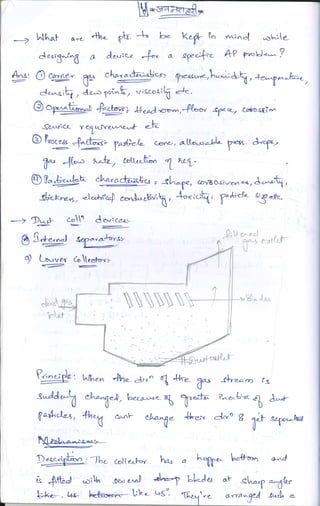 14 - जनवरी
→ What are the pts. to be kept in mind while
designing a device for a specific AP problem?
Ans: ① Carrier gas characteristics: pressure, humidity, temperature,
density, dew point, viscosity etc.
② Operational factors: Head room, floor space, corrosion
Service requirement etc
③ Process factors: particle conc., allowable press. drops,
gas flow rate, collection η req.
④ Particulate characteristics: shape, corrosiveness, density,
stickness, electrical conductivity, toxicity, particle size etc.
→ Dust collⁿ devices
Internal separators
a) Louver Collector:
filtered
gas outlet
dust gas
inlet
Blades
Dust outlet
Principle: When the dirⁿ of the gas stream is
suddenly changed, because of greater inertia of dust
particles, they can't change their dirⁿ & get separated
Mechanism:
Description: The collector has a hopper bottom and
is fitted with several sharp blades at sharp angles
like 45 between like 45°. They're arranged such a